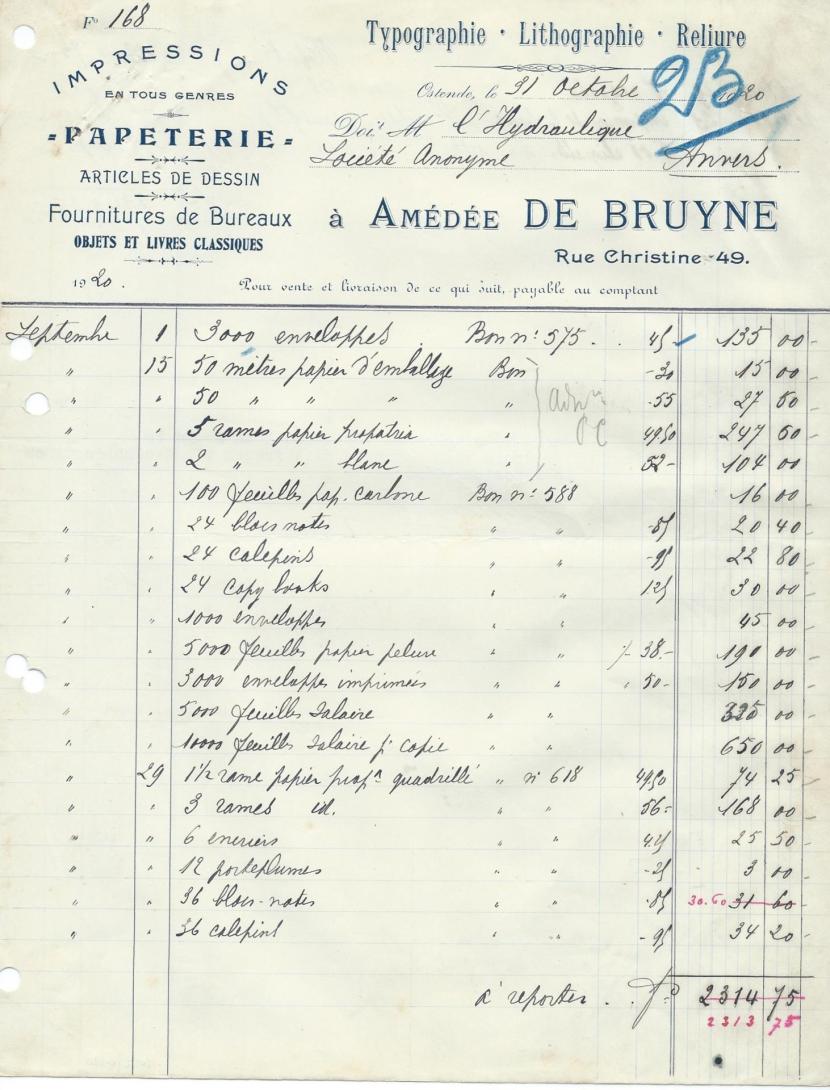 F° 168
IMPRESSIONS
EN TOUS GENRES
PAPETERIE
ARTICLES DE DESSIN
Fournitures de Bureaux
OBJETS ET LIVRES CLASSIQUES
1920.
Typographie · Lithographie · Reliure
Ostende, le 31 Octobre 1920
23
Doit M l'Hydraulique
Société Anonyme Anvers.
à AMÉDÉE DE BRUYNE
Rue Christine 49.
Pour vente et livraison de ce qui suit, payable au comptant
Septembre 1 3000 enveloppes Bon n° 575. 45 135 00
" 15 50 mètres papier d'emballage Bon -30 15 00
" " 50 " " " " -55 27 50
" " 5 rames papier propatria " 49.50 247 50
" " 2 " " blanc " 52- 104 00
" " 100 feuilles pap. carbone Bon n° 588 16 00
" " 24 blocs notes " " -85 20 40
" " 24 calepins " " -95 22 80
" " 24 copy books " " 125 30 00
" " 1000 enveloppes " " 45 00
" " 5000 feuilles papier pelure " " 38.- 190 00
" " 3000 enveloppes imprimées " " " 50- 150 00
" " 5000 feuilles Salaire " " 325 00
" " 10000 feuilles Salaire pr copie " " 650 00
" 29 1 1/2 rame papier propa quadrillé " n° 618 49.50 74 25
" " 3 rames id. " " 56- 168 00
" " 6 encriers " " 4.25 25 50
" " 12 porteplumes " " -25 3 00
" " 36 blocs-notes " " -85 30.60 31 60
" " 36 calepins " " -95 34 20
à reporter . . 2314 75
2313 75